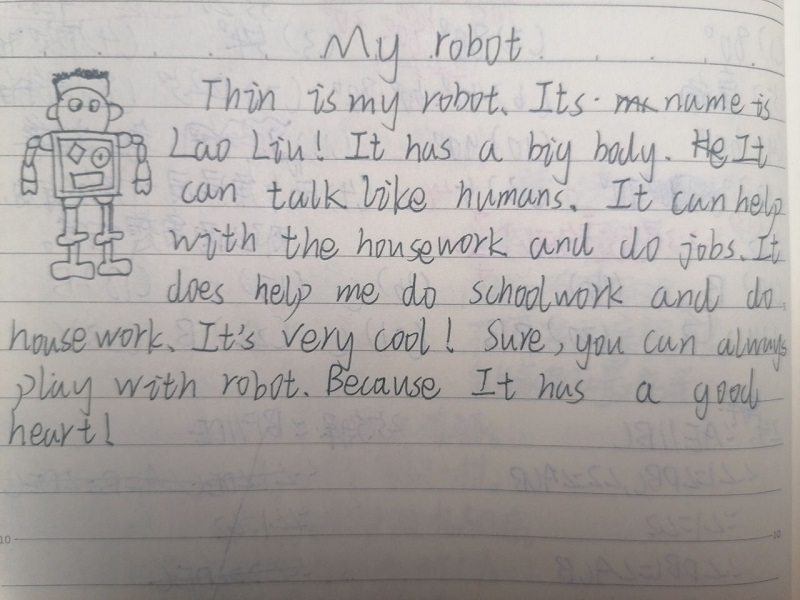 My robot
Thin is my robot. Its name is
Lao Liu! It has a big body. He It
can talk like humans. It can help
with the housework and do jobs. It
does help me do schoolwork and do
house work. It's very cool! Sure, you can always
play with robot. Because It has a good
heart!